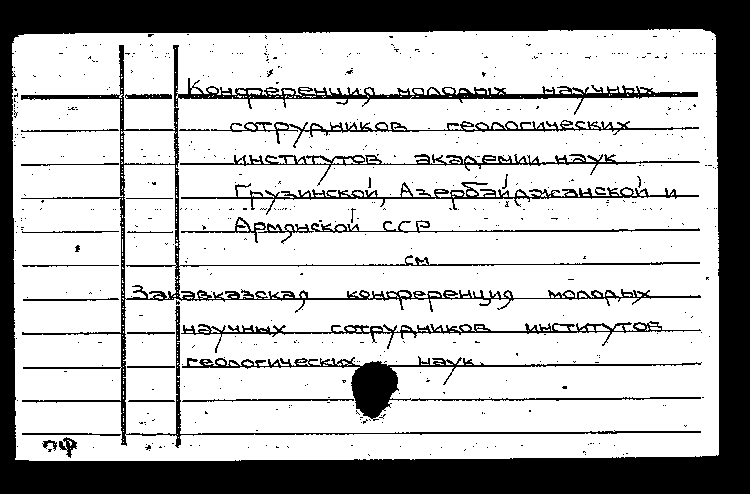 Конференция молодых научных
сотрудников геологических
институтов академии наук
Грузинской, Азербайджанской и
Армянской ССР
см
Закавказская конференция молодых
научных сотрудников институтов
геологических наук.